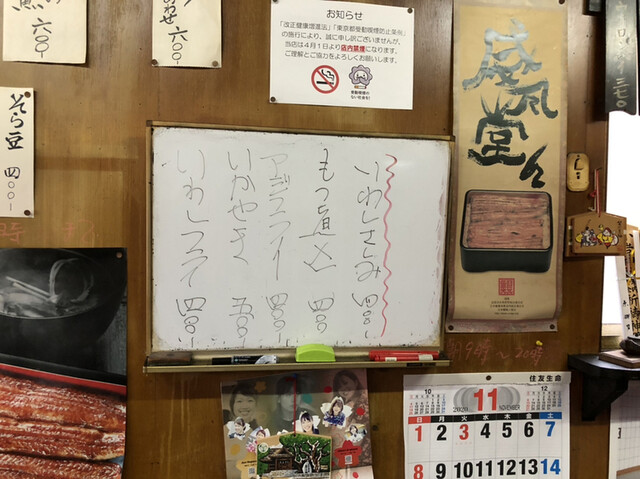 六〇〇
わせ 六〇〇
お知らせ
「改正健康増進法」「東京都受動喫煙防止条例」
の施行により、誠に申し訳ございませんが、
当店は4月1日より店内禁煙になります。
ご理解とご協力をよろしくお願いします。
受動喫煙の
ない社会を!
そら豆 四〇〇
いわしさしみ 四〇〇
もつ煮込 四〇〇
アジフライ 四〇〇
いかやき 五〇〇
いわしフライ 四〇〇
威風堂々
三七〇
9時〜20時
住友生命
10
11
12
2020
NOVEMBER
日 月 火 水 木 金 土
1 2 3 4 5 6 7
8 9 10 11 12 13 14